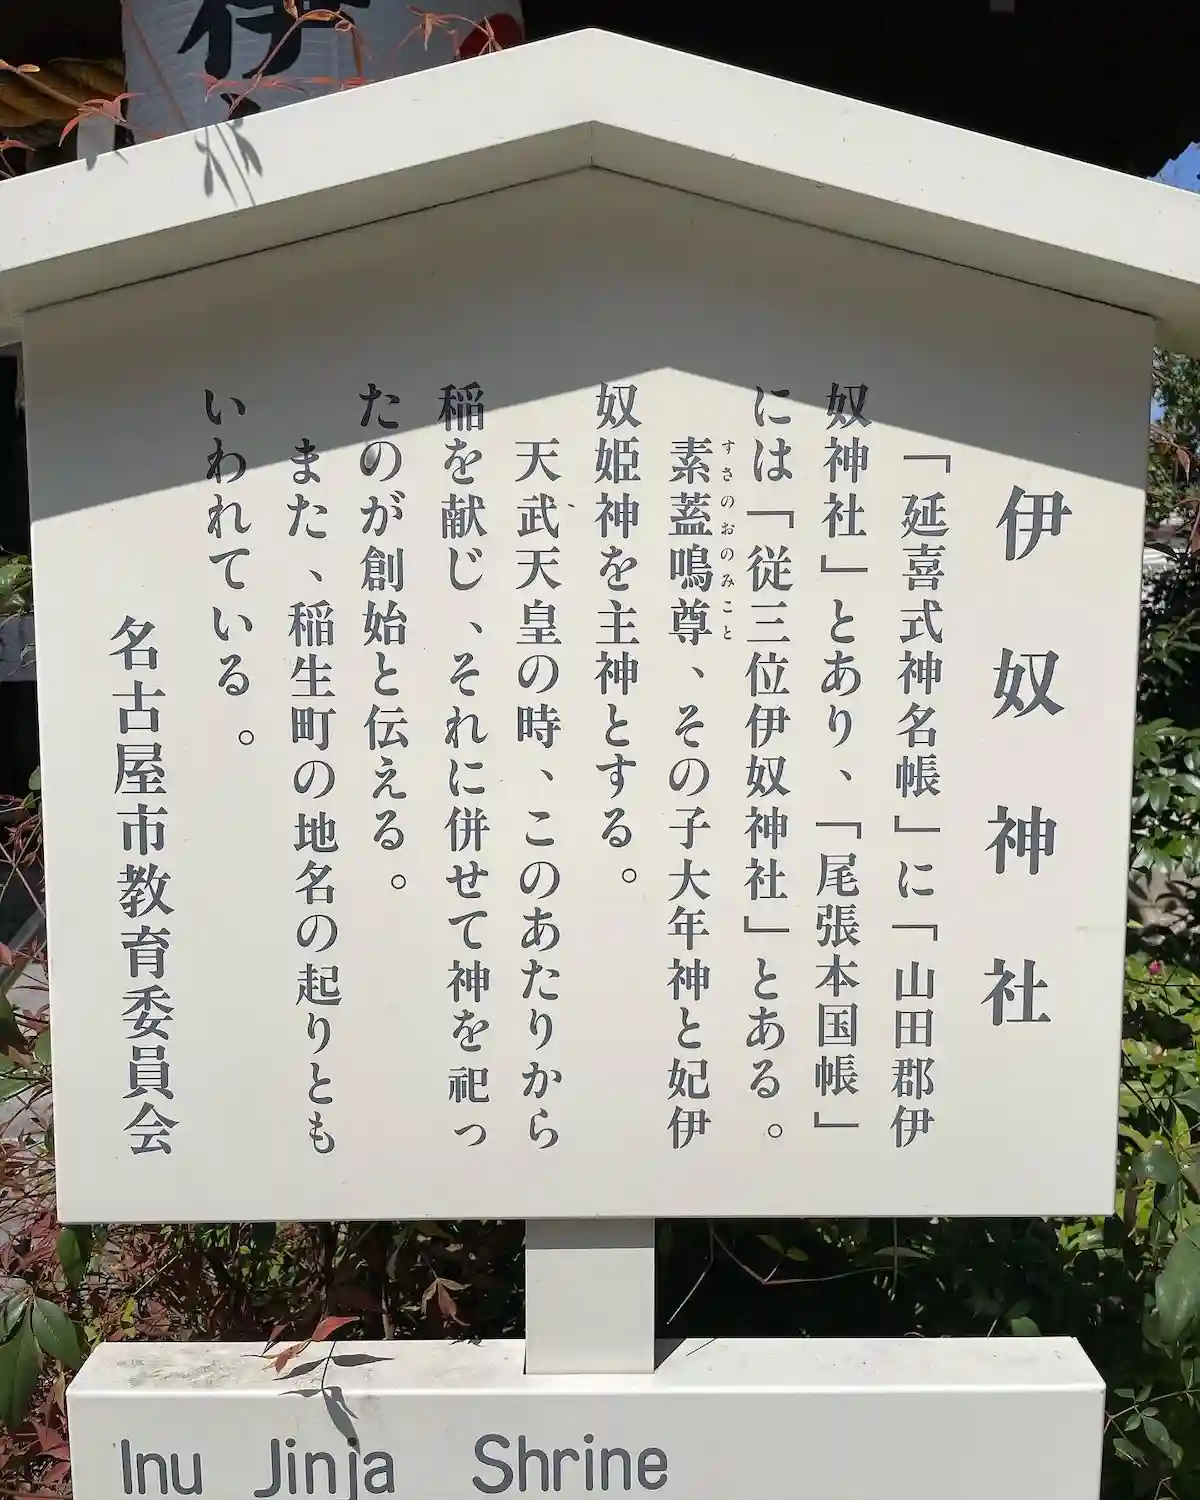 伊
伊奴神社
「延喜式神名帳」に「山田郡伊
奴神社」とあり、「尾張本国帳」
には「従三位伊奴神社」とある。
すさのおのみこと
素蓋鳴尊、その子大年神と妃伊
奴姫神を主神とする。
天武天皇の時、このあたりから
稲を献じ、それに併せて神を祀っ
たのが創始と伝える。
また、稲生町の地名の起りとも
いわれている。
名古屋市教育委員会
Inu Jinja Shrine